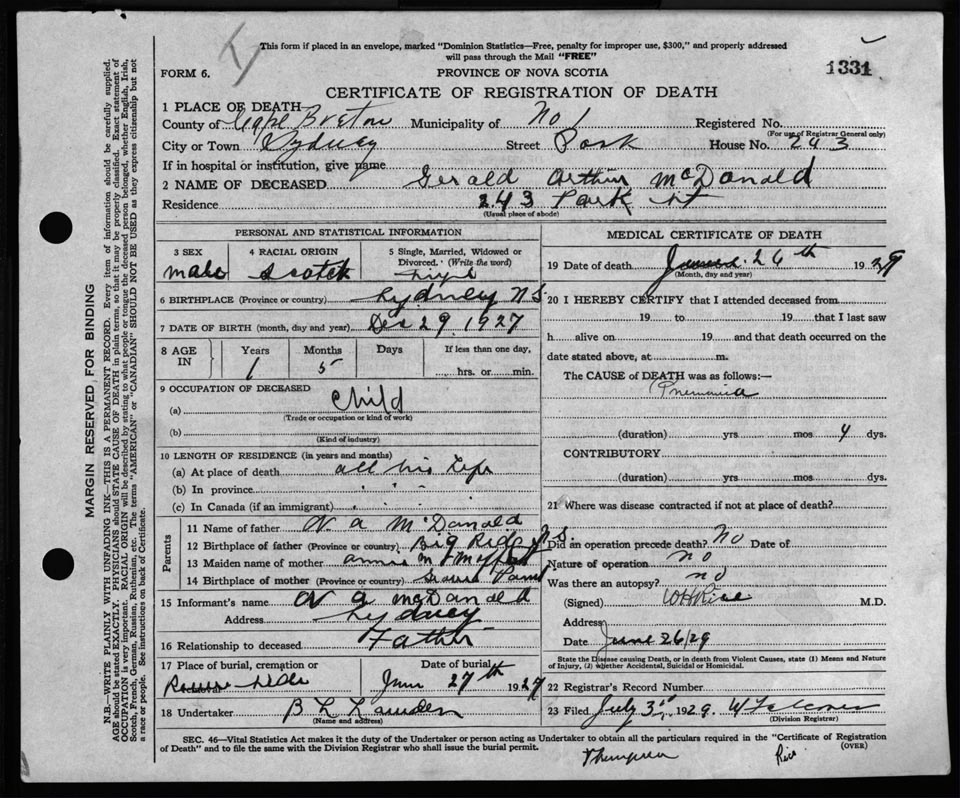 This form if placed in an envelope, marked "Dominion Statistics—Free, penalty for improper use, $300," and properly addressed
will pass through the Mail "FREE"
1331
FORM 6.
PROVINCE OF NOVA SCOTIA
CERTIFICATE OF REGISTRATION OF DEATH
1 PLACE OF DEATH
County of Cape Breton Municipality of No 1 Registered No.
(For use of Registrar General only)
City or Town Sydney Street Park House No. 243
If in hospital or institution, give name
2 NAME OF DECEASED Gerald Arthur McDonald
Residence 243 Park St
(Usual place of abode)
PERSONAL AND STATISTICAL INFORMATION
3 SEX 4 RACIAL ORIGIN 5 Single, Married, Widowed or
Divorced. (Write the word)
male Scotch Single
6 BIRTHPLACE (Province or country) Sydney N S.
7 DATE OF BIRTH (month, day and year) Dec 29. 1927
8 AGE IN Years Months Days If less than one day,
1 5 hrs. or min.
9 OCCUPATION OF DECEASED
(a) Child
(Trade or occupation or kind of work)
(b)
(Kind of industry)
10 LENGTH OF RESIDENCE (in years and months)
(a) At place of death all his Life
(b) In province
(c) In Canada (if an immigrant)
Parents
11 Name of father N a McDonald
12 Birthplace of father (Province or country) Big Ridge N S.
13 Maiden name of mother
14 Birthplace of mother (Province or country)
15 Informant's name N a McDonald
Address Sydney
16 Relationship to deceased Father
17 Place of burial, cremation or Date of burial
June 27th 1927
18 Undertaker
(Name and address)
MEDICAL CERTIFICATE OF DEATH
19 Date of death June 26th 1929
(Month, day and year)
20 I HEREBY CERTIFY that I attended deceased from
19 to 19 that I last saw
h alive on 19 and that death occurred on the
date stated above, at m.
The CAUSE of DEATH was as follows:—
Pneumonia
(duration) yrs. mos 4 dys.
CONTRIBUTORY
(duration) yrs. mos dys.
21 Where was disease contracted if not at place of death?
Did an operation precede death? No Date of
Nature of operation no
Was there an autopsy? no
(Signed) W H Rice M.D.
Address
Date June 26/29
State the Disease causing Death, or in death from Violent Causes, state (1) Means and Nature
of Injury, (2) whether Accidental, Suicidal or Homicidal.
22 Registrar's Record Number
23 Filed July 3rd 1929
(Division Registrar)
SEC. 46—Vital Statistics Act makes it the duty of the Undertaker or person acting as Undertaker to obtain all the particulars required in the "Certificate of Registration
of Death" and to file the same with the Division Registrar who shall issue the burial permit. (OVER)
Thompson Rice
MARGIN RESERVED FOR BINDING
N.B.—WRITE PLAINLY WITH UNFADING INK—THIS IS A PERMANENT RECORD. Every item of information should be carefully supplied.
AGE should be stated EXACTLY. PHYSICIANS should STATE CAUSE OF DEATH in plain terms, so that it may be properly classified. Exact statement of
OCCUPATION is very important. RACIAL ORIGIN will be described by stating to what people or tongue the deceased person belonged, whether English, Irish,
Scotch, French, German, Russian, Ruthenian, etc. The terms "AMERICAN" or "CANADIAN" SHOULD NOT BE USED as they express citizenship but not
a race or people. See instructions on back of Certificate.